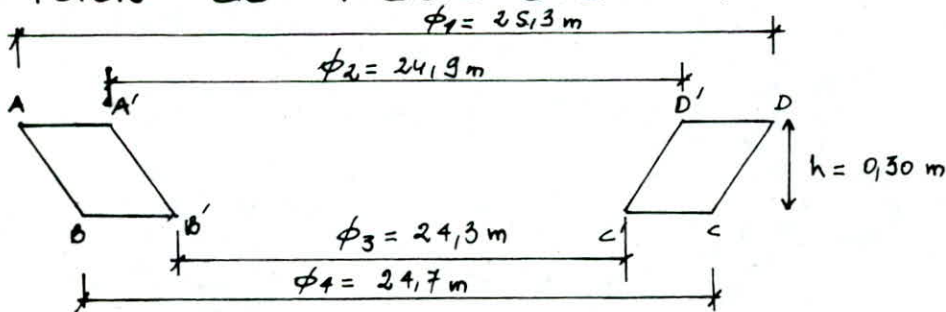 ϕ1 = 25,3 m
ϕ2 = 24,9 m
A A' D' D
h = 0,30 m
B B' C' C
ϕ3 = 24,3 m
ϕ4 = 24,7 m